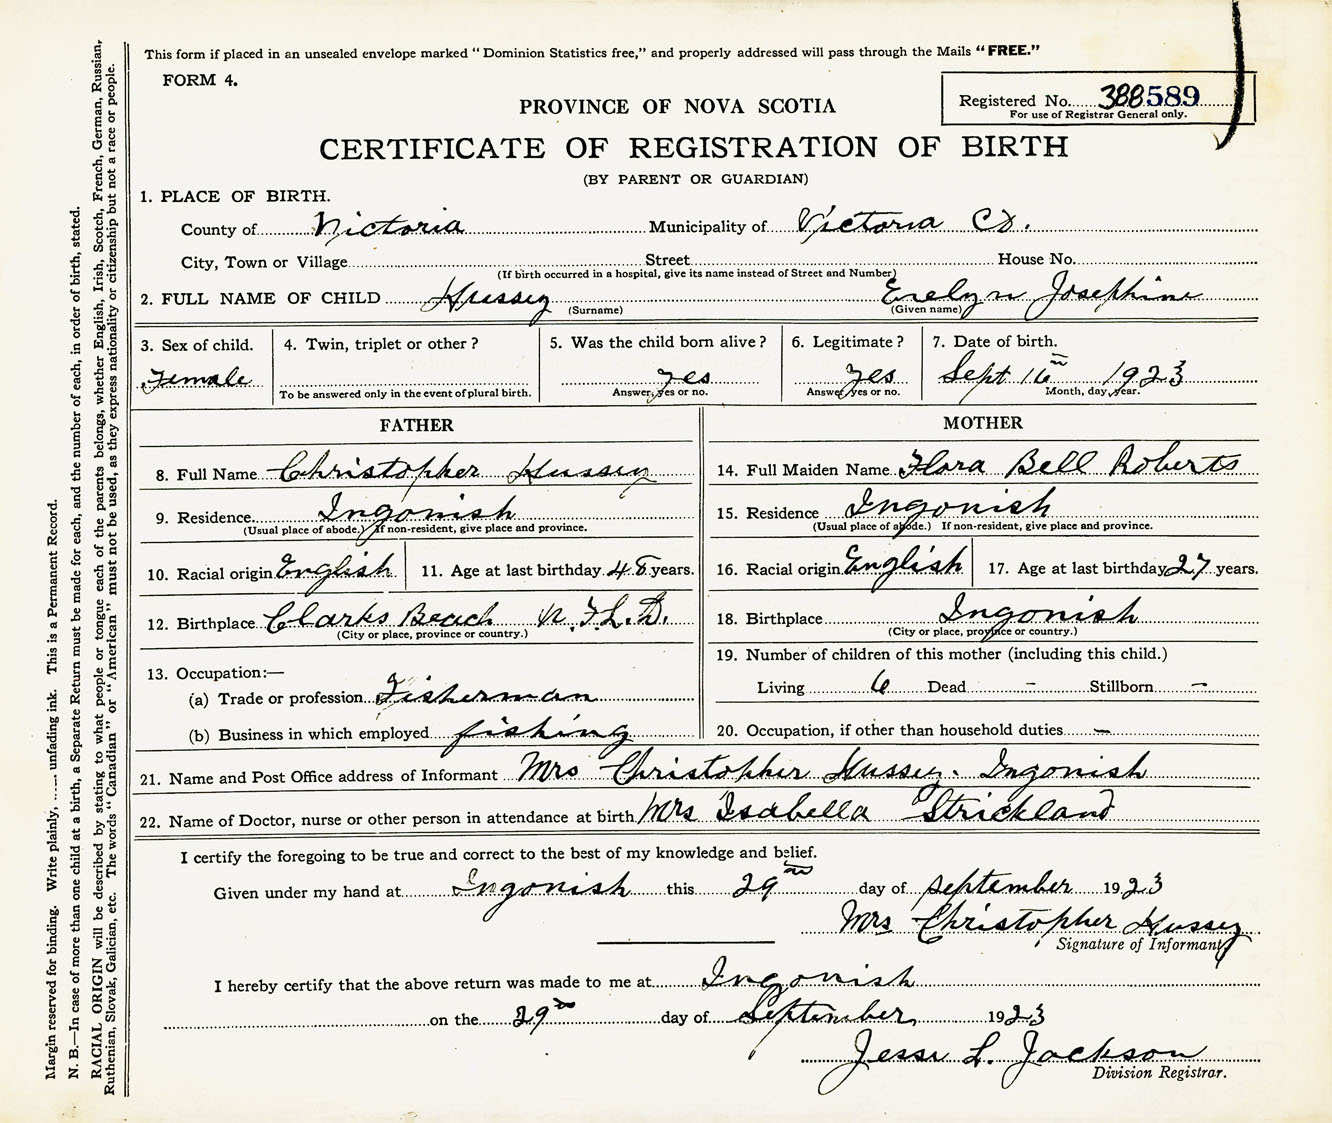 This form if placed in an unsealed envelope marked “Dominion Statistics free,” and properly addressed will pass through the Mails “FREE.”
FORM 4.
Registered No. 388589
For use of Registrar General only.
PROVINCE OF NOVA SCOTIA
CERTIFICATE OF REGISTRATION OF BIRTH
(BY PARENT OR GUARDIAN)
1. PLACE OF BIRTH.
County of Victoria Municipality of Victoria Co.
City, Town or Village Street House No.
(If birth occurred in a hospital, give its name instead of Street and Number)
2. FULL NAME OF CHILD Hussey Evelyn Josephine
(Surname) (Given name)
3. Sex of child. 4. Twin, triplet or other? 5. Was the child born alive? 6. Legitimate? 7. Date of birth.
Female yes yes Sept 16th 1923
To be answered only in the event of plural birth. Answer, yes or no. Answer yes or no. Month, day, year.
FATHER MOTHER
8. Full Name Christopher Hussey 14. Full Maiden Name Flora Bell Roberts
9. Residence Ingonish 15. Residence Ingonish
(Usual place of abode.) If non-resident, give place and province. (Usual place of abode.) If non-resident, give place and province.
10. Racial origin English 11. Age at last birthday 48 years. 16. Racial origin English 17. Age at last birthday 27 years.
12. Birthplace Clarks Beach N.F.L.D. 18. Birthplace Ingonish
(City or place, province or country.) (City or place, province or country.)
13. Occupation:— 19. Number of children of this mother (including this child.)
(a) Trade or profession Fisherman Living 6 Dead - Stillborn -
(b) Business in which employed fishing 20. Occupation, if other than household duties -
21. Name and Post Office address of Informant Mrs Christopher Hussey. Ingonish
22. Name of Doctor, nurse or other person in attendance at birth Mrs Isabella Strickland
I certify the foregoing to be true and correct to the best of my knowledge and belief.
Given under my hand at Ingonish this 29th day of september 1923
Mrs Christopher Hussey
Signature of Informant
I hereby certify that the above return was made to me at Ingonish
on the 29th day of September, 1923
Jessi L. Jackson
Division Registrar.
Margin reserved for binding. Write plainly, ...... unfading ink. This is a Permanent Record.
N. B.—In case of more than one child at a birth, a Separate Return must be made for each, and the number of each, in order of birth, stated.
RACIAL ORIGIN will be described by stating to what people or tongue each of the parents belongs, whether English, Irish, Scotch, French, German, Russian,
Ruthenian, Slovak, Galician, etc. The words “Canadian” or “American” must not be used, as they express nationality or citizenship but not a race or people.